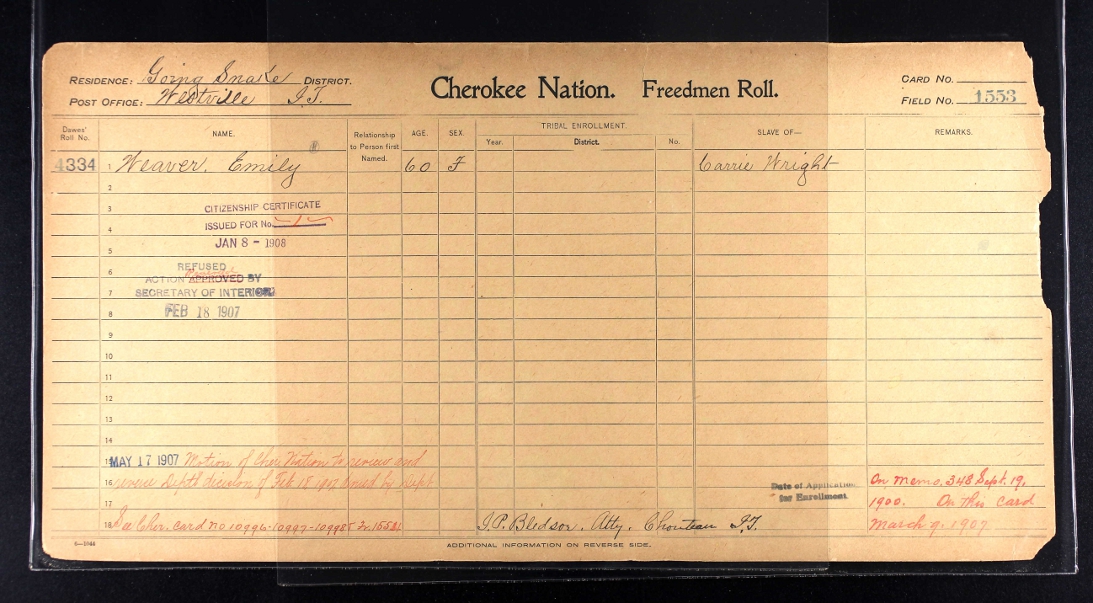 RESIDENCE: Going Snake DISTRICT.
POST OFFICE: Westville I.T.
Cherokee Nation. Freedmen Roll.
CARD NO.
FIELD NO. 1553
Dawes' Roll No.
NAME.
Relationship to Person first Named.
AGE.
SEX.
TRIBAL ENROLLMENT.
Year.
District.
No.
SLAVE OF—
REMARKS.
4334 1 Weaver, Emily 60 F Carrie Wright
2
3
CITIZENSHIP CERTIFICATE
4 ISSUED FOR No. 1
JAN 8 - 1908
5
REFUSED
6
ACTION APPROVED BY
7 SECRETARY OF INTERIOR
8 FEB 18 1907
9
10
11
12
13
14
15 MAY 17 1907 Motion of Cher Nation to review and
16 reverse Dept's decision of Feb 18 1907 denied by Dept
17
18 See Cher. Card No 10996-10997-10998
I.P. Bledsoe, Atty, Chouteau I.T.
Date of Application
for Enrollment.
On memo. 348 Sept. 19,
1900. On this card
March 9, 1907
6—1044
ADDITIONAL INFORMATION ON REVERSE SIDE.